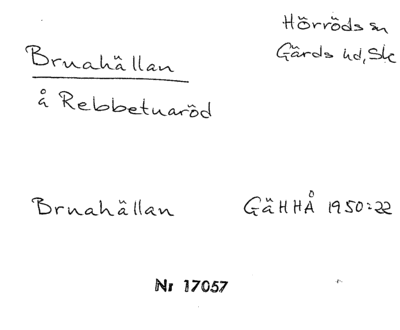 Hörröds sn
Gärds hd, Sk
Bruahällan
å Rebbetuaröd
Bruahällan GäHHÅ 1950:22
Nr 17057